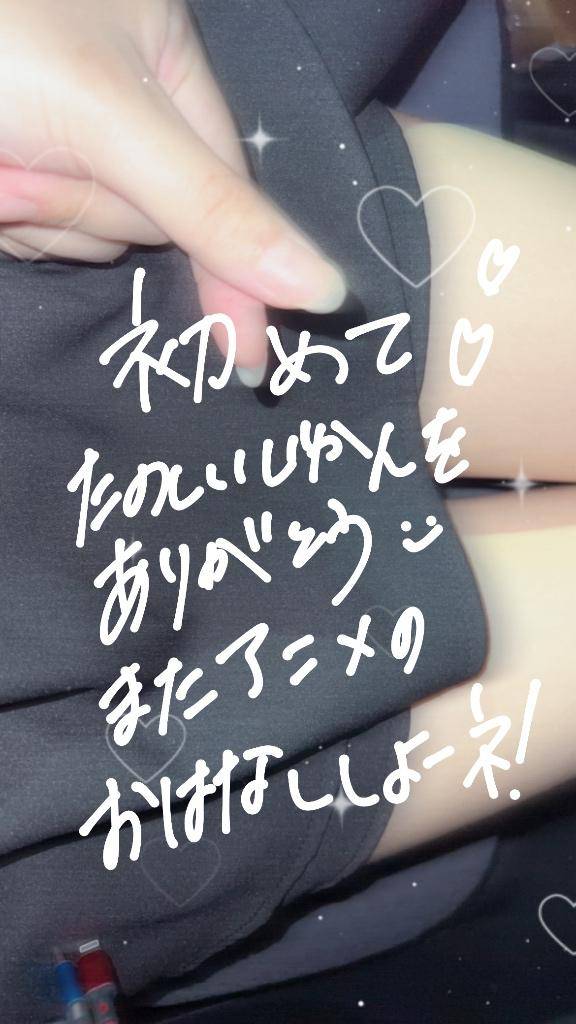 初めて♡♡
たのしいじかんを
ありがとう
またアニメの
おはなししよーネ!